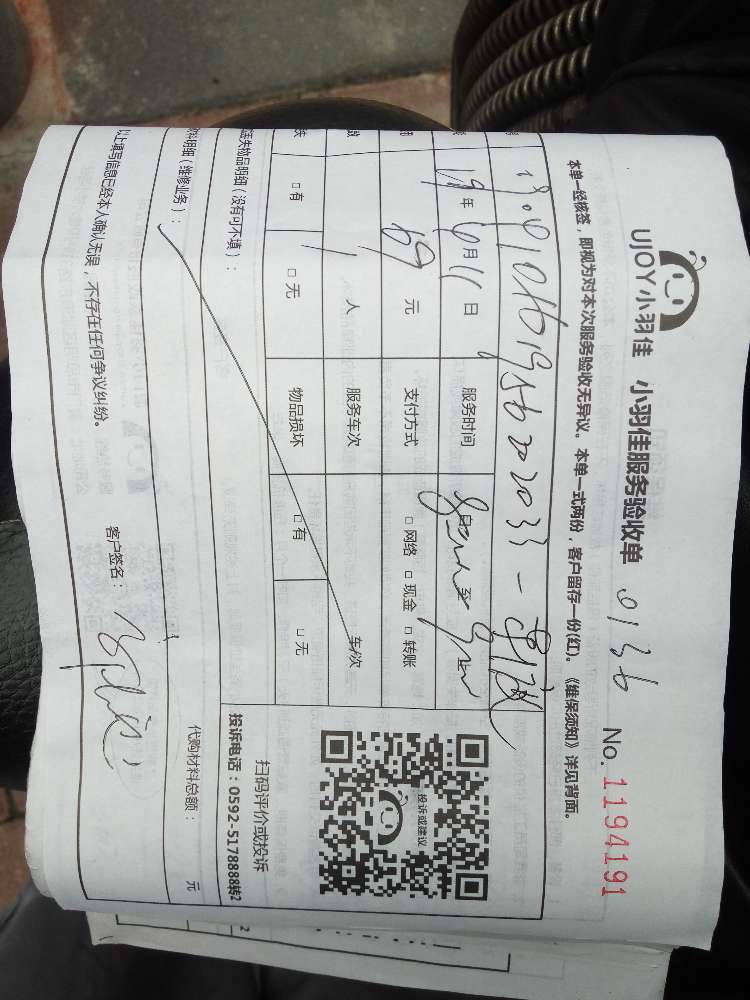 UJOY小羽佳 小羽佳服务验收单 0136 No.1194191
本单一经核签，即视为对本次服务验收无异议。本单一式两份，客户留存一份(红)。《维保须知》详见背面。
19年6月11日 服务时间 自 至 止
69元 支付方式 □网络 □现金 □转账
数 1人 服务车次 车/次
失 □有 □无 物品损坏 □有 □无
丢失物品明细（没有可不填）：
材料明细（维修业务）：
代购材料总额： 元
以上填写信息已经本人确认无误，不存在任何争议纠纷。
客户签名：
投诉或建议
扫码评价或投诉
投诉电话：0592-5178888转2